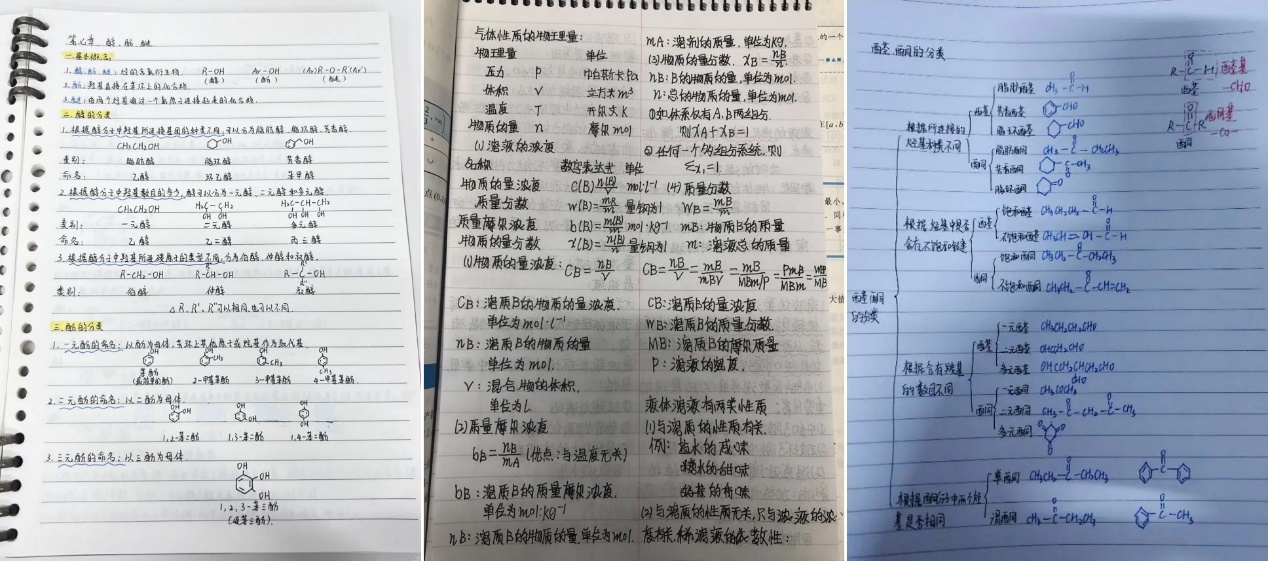 第七章. 醇, 酚, 醚
一.基本概念
1. 醇 酚 醚: 烃的含氧衍生物. R-OH Ar-OH (Ar)R-O-R'(Ar')
(醇) (酚) (醚)
2. 酚: 羟基直接连苯环上的化合物.
3. 醚: 由两个烃基通过一个氧原子连接起来的化合物.
二.醇的分类
1. 根据醇分子中羟基所连接基团的种类不同, 可以分为脂肪醇. 脂环醇. 芳香醇.
CH₃CH₂OH OH OH
类别: 脂肪醇 脂环醇 芳香醇
命名: 乙醇 环己醇 苯甲醇
2. 根据醇分子中羟基数目的多少, 醇可以分为一元醇, 二元醇和多元醇
CH₃CH₂OH H₂C-CH₂ H₂C-CH-CH₂
OH OH OH OH OH
类别: 一元醇 二元醇 多元醇
命名: 乙醇 乙二醇 丙三醇
3. 根据醇分子中羟基所连碳原子的类型不同, 分为伯醇, 仲醇和叔醇.
R-CH₂-OH R-CH-OH R-C-OH
类别: 伯醇 仲醇 叔醇
△ R, R', R''可以相同, 也可以不同.
三.酚的分类
1. 一元酚的命名: 以酚为母体, 苯环上其他原子或烃基作为取代基.
OH OH OH OH
CH₃ CH₃ CH₃
苯酚
(最简单的酚) 2-甲苯酚 3-甲苯酚 4-甲苯酚
2. 二元酚的命名: 以二酚为母体.
OH OH OH
OH OH OH
1,2-苯二酚 1,3-苯二酚 1,4-苯二酚
3. 三元酚的命名: 以三酚为母体
OH
OH
OH
1, 2, 3-苯三酚
(连苯三酚).
气体性质的物理量:
物理量 单位
压力 P 帕斯卡Pa
体积 V 立方米m³
温度 T 开尔文K
物质的量 n 摩尔mol
(1)溶液的浓度
名称 数学表达式 单位
物质的量浓度 C(B) n(B)/V mol·L⁻¹
质量分数 w(B)= 量钢为1
质量摩尔浓度 b(B)= mol·kg⁻¹
物质的量分数 x(B)= n(B)/n 量钢为1
(1)物质的量浓度: CB=nB/V
CB: 溶质B的物质的量浓度,
单位为mol·L⁻¹
nB: 溶质B的物质的量
单位为mol.
V: 混合物的体积,
单位为L
(2)质量摩尔浓度
bB=nB/mA (优点: 与温度无关)
bB: 溶质B的质量摩尔浓度,
单位为mol·kg⁻¹
nB: 溶质B的物质的量, 单位为mol.
mA: 溶剂的质量, 单位为kg,
(3)物质的量分数, XB=nB/n
nB: B的物质的量, 单位为mol.
n: 总的物质的量, 单位为mol.
①如体系仅有A,B两组分,
则XA+XB=1
②任何一个多组分系统, 则
Σxi=1
(4) 质量分数
WB=mB/m
mB: 物质B的质量
m: 溶液总的质量
CB=nB/V=mB/MBV=mB/MBm/ρ=ρmB/MBm
CB: 溶质B的量浓度
WB: 溶质B的质量分数,
MB: 溶质B的摩尔质量
ρ: 溶液的密度,
液体溶液有两类性质
(1)与溶质的性质有关,
例: 盐水的咸味
糖水的甜味
(2)与溶质的性质无关, 只与溶液的浓
度有关, 称溶液的依数性:
的一个
[a,b
最小,
一事
大值
醛, 酮的分类
R-C-H 醛基
-CHO
R-C-R 酮基
-CO-
酮
醛酮
的分类
根据所连接的
烃基种类不同
醛
脂肪醛 CH₃-C-H
芳香醛 CHO
脂环醛 CHO
酮
脂肪酮 CH₃-C-CH₂CH₃
芳香酮 C-CH₃
脂环酮 O
根据烃基中是否
含有不饱和键
醛
饱和醛 CH₃CH₂CH₂-C-H
不饱和醛 CH₃CH=CH-C-H
酮
饱和酮 CH₃-C-CH₂CH₃
不饱和酮 CH₃CH₂-C-CH=CH₂
根据含有羰基
的数目不同
醛
一元醛 CH₃CH₂CH₂CHO
二元醛 OHCCH₂CHO
多元醛 OHCCH₂CHCH₂CHO
CHO
酮
一元酮 CH₃COCH₃
二元酮 CH₃-C-CH₂-C-CH₃
多元酮
根据酮分子中两个烃
基是否相同
单酮 CH₃CH₂-C-CH₂CH₃
混酮 CH₃-C-CH₂CH₃ C-CH₃